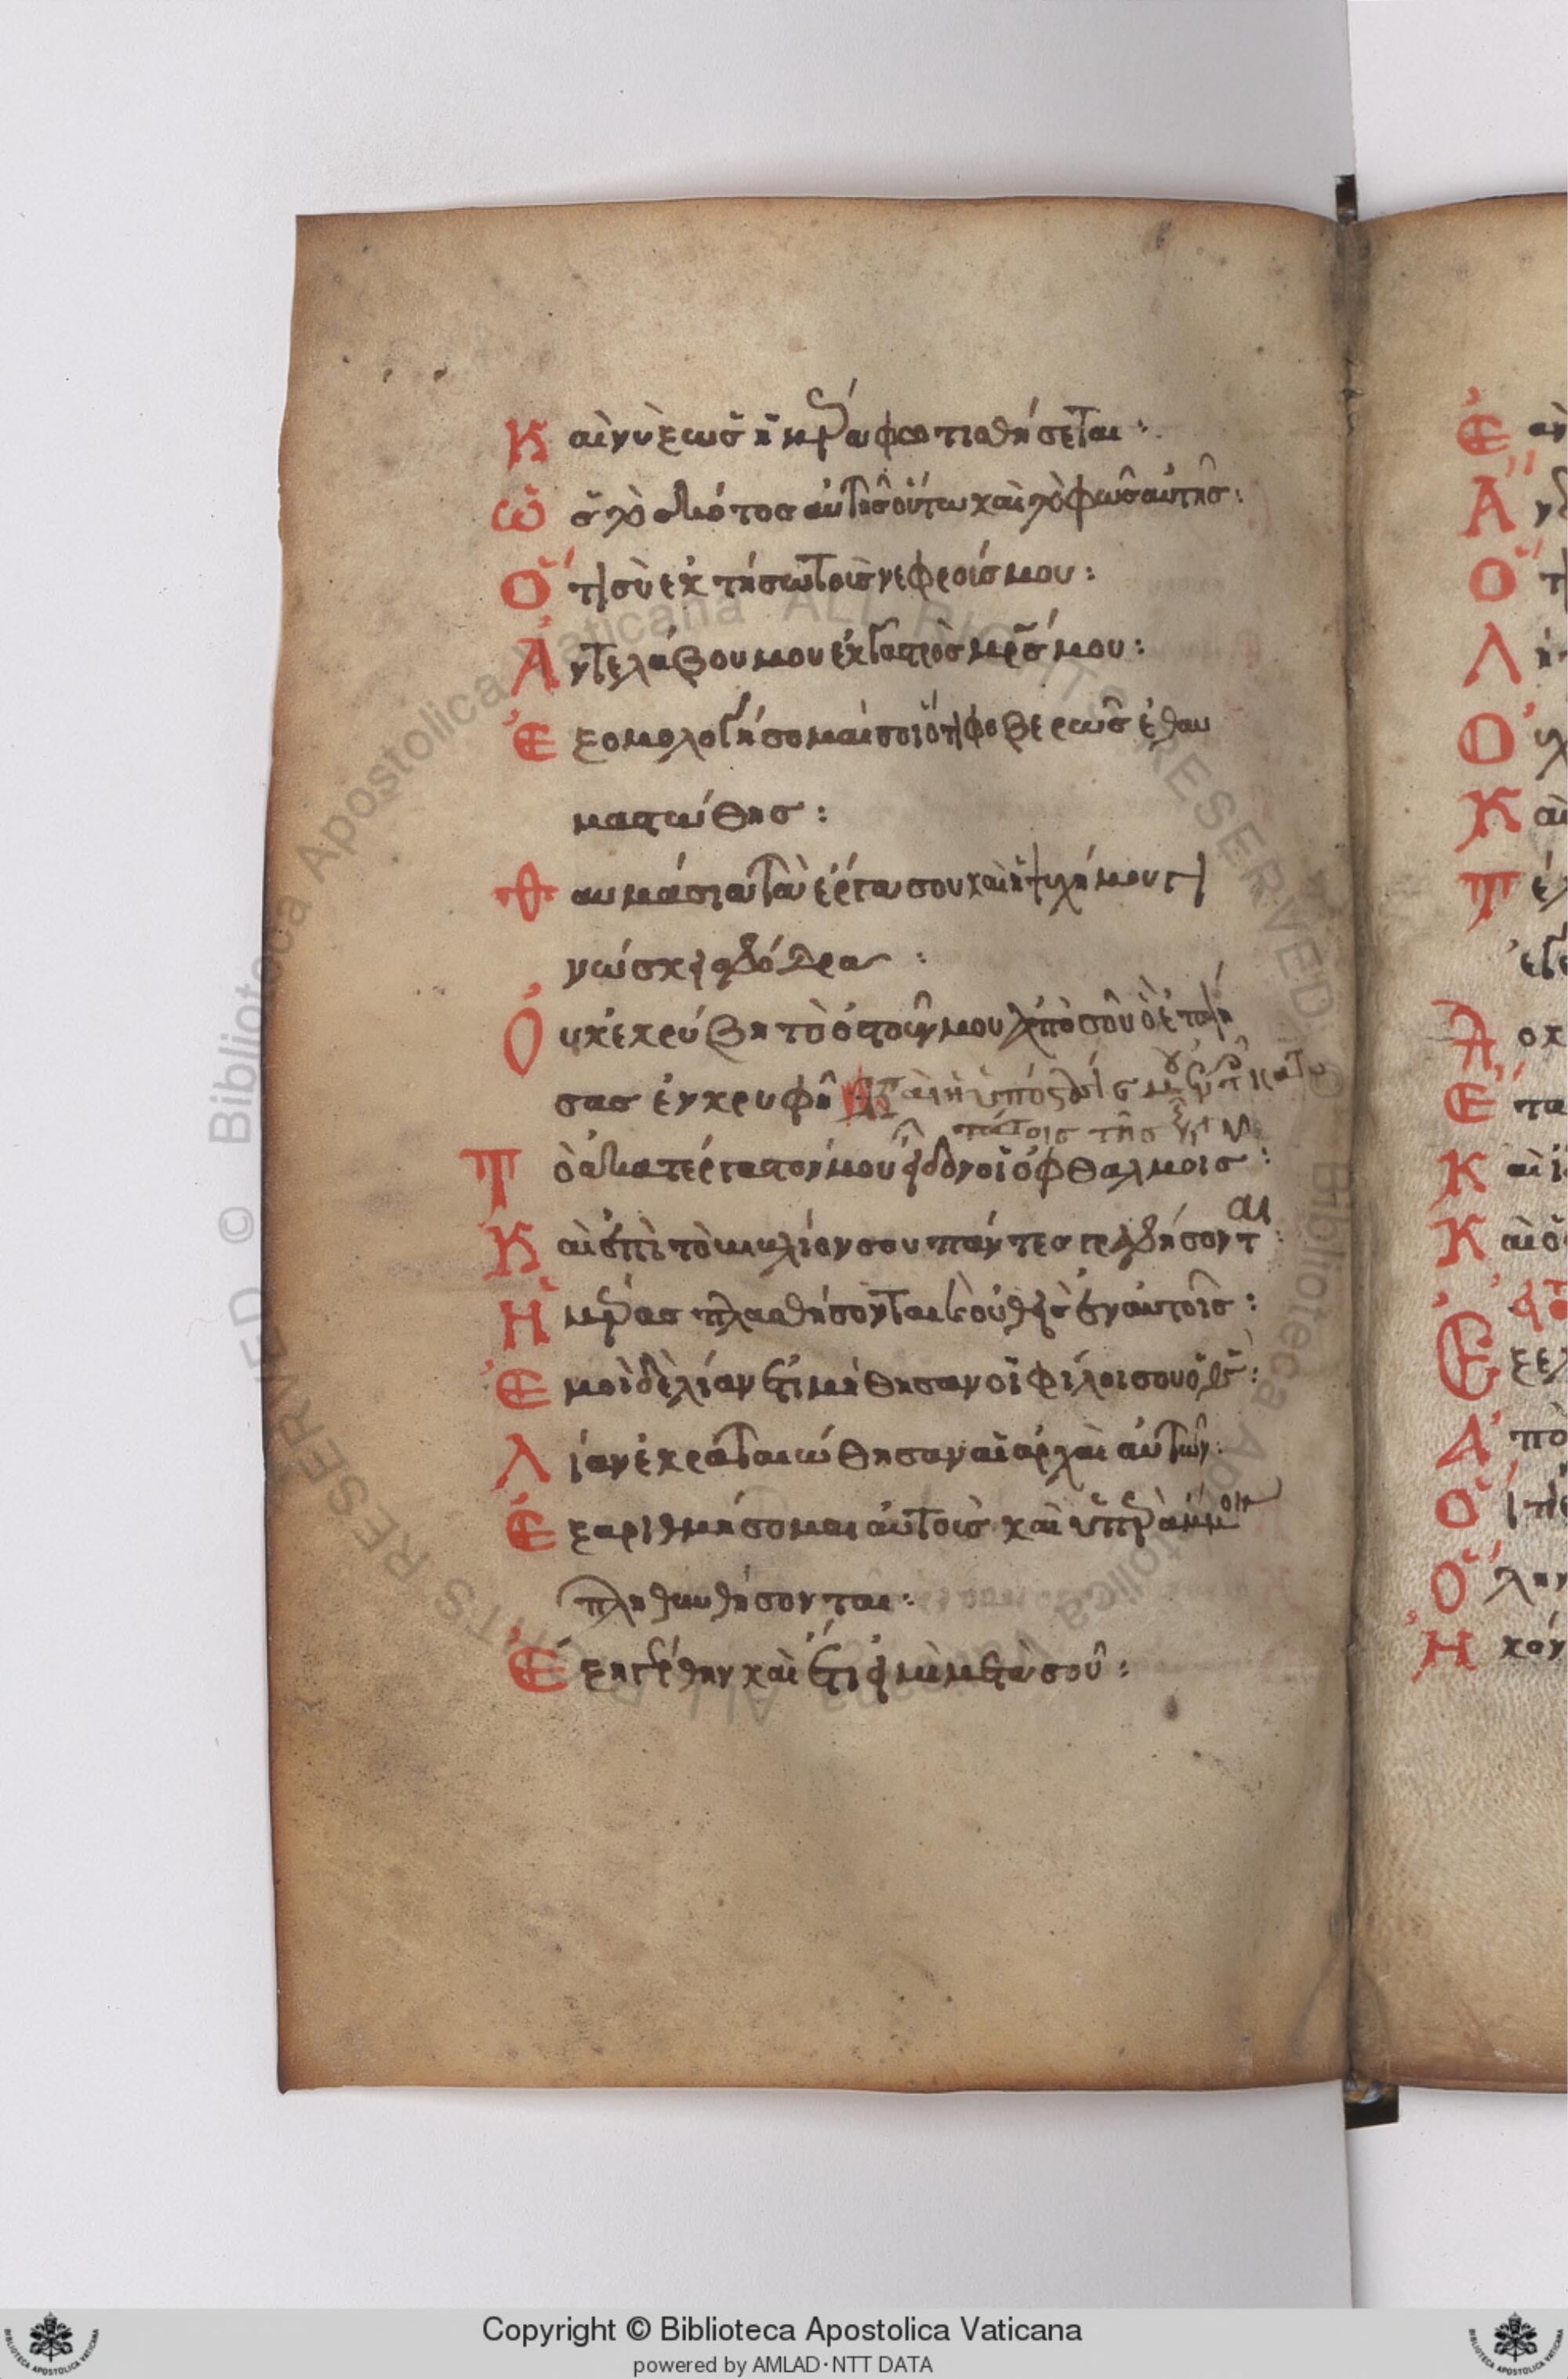 Καὶ νὺξ ὡσ ἡμέρα φωτισθήσεται:
Ὡσ τὸ σκότοσ αὐτῆσ οὕτω καὶ τὸ φῶσ αὐτῆσ:
Ὅτι σὺ ἐκτήσω τοὺσ νεφρούσ μου:
Ἀντελάβου μου ἐκ γαστρὸσ μρσ μου:
Ἐξομολογήσομαί σοι ὅτι φοβερῶσ ἐθαυ
μαστώθησ:
Θαυμάσια τὰ ἔργα σου καὶ ἡ ψυχή μου γι
νώσκει σφόδρα:
Οὐκ ἐκρύβη τὸ ὀστοῦν μου ἀπὸ σοῦ ὃ ἐποίη
σασ ἐν κρυφῆ Καὶ ἡ ὑπόστασίσ μου ἐν τ κατω
τάτοισ τῆσ γῆσ
Τὸ ἀκατέργαστόν μου εἴδον οἱ ὀφθαλμοί σ:
Καὶ ἐπὶ τὸ βιβλίον σου πάντεσ γραφήσονται:
Ἡμέρασ πλασθήσονται καὶ οὐθεὶσ ἐν αὐτοῖσ:
Ἐμοὶ δὲ λίαν ἐτιμήθησαν οἱ φίλοι σου ὁ θσ:
Λίαν ἐκραταιώθησαν αἱ ἀρχαὶ αὐτῶν:
Ἐξαριθμήσομαι αὐτοὺσ καὶ ὑπὲρ ἄμμον
πληθυνθήσονται:
Ἐξηγέρθην καὶ ἔτι εἰμὶ μετὰ σοῦ:
Copyright © Biblioteca Apostolica Vaticana
powered by AMLAD·NTT DATA